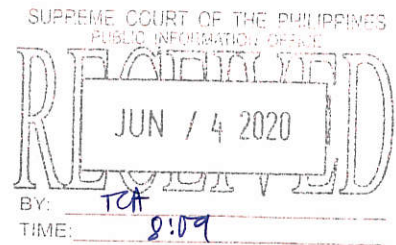 SUPREME COURT OF THE PHILIPPINES
PUBLIC INFORMATION OFFICE
RECEIVED
JUN / 4 2020
BY: TCA
TIME: 8:09